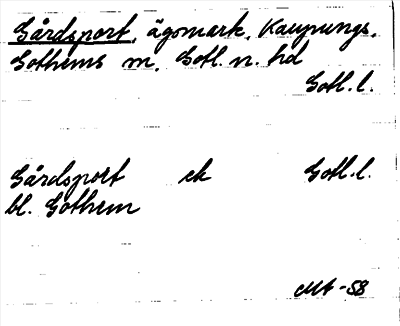 Gårdsport, ägomark, Kaupungs,
Gothems m. Gotl. n. hd
Gotl. l.
Gårdsport ek Gotl. l.
bl. Gothem
MA -58